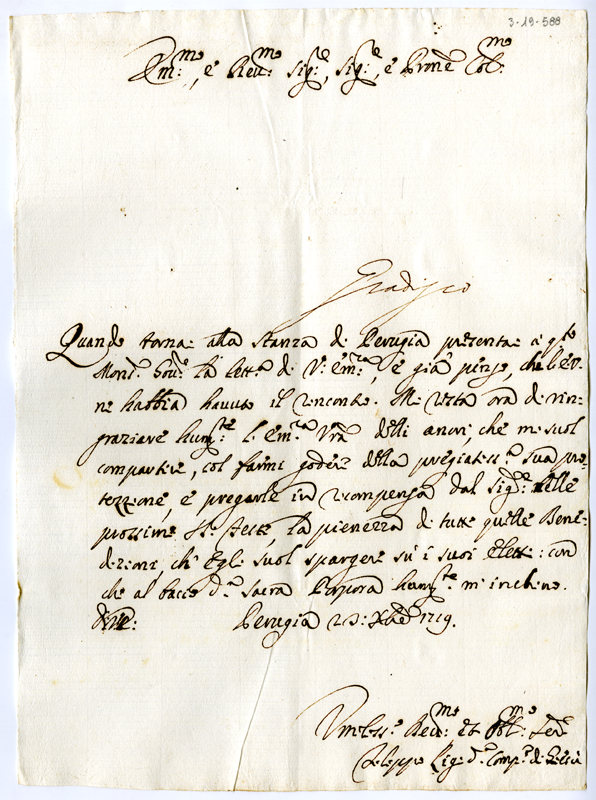 3-19-588
Em:mo, e Reu:mo Sig:re, Sig:re, e Prone Col:mo
Gradisco
Quando tornai alla stanza di Perugia presentai a q:sto
Mons:r Gou:re la lett:a di V: Em:a, e già penso, che l'E.V.
ne habbia havuto il riscontro. Mi resta ora di rin-
graziare hum:te l'Em:a Vra delli onori, che mi suol
compartire, col farmi godere della pregiatiss:a sua pro-
tezzione, e pregarle in ricompensa dal Sig:re nelle
prossime SS. Feste, la pienezza di tutte quelle Bene-
dizioni, ch'Egli suol spargere su i suoi Eletti: con
che al bacio d:a Sacra Porpora hum:te m'inchino.
Perugia 23: Xbre 1719.
Vmiliss:o Reu:mo et Obl:mo Ser:e
Comp:a di Giesù